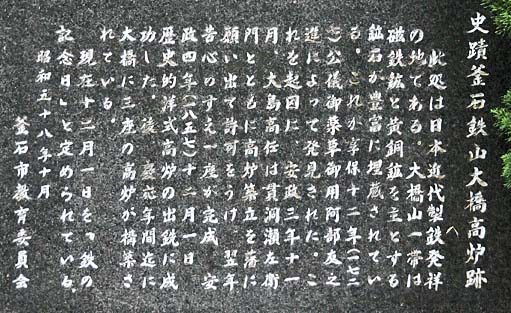 史蹟釜石鉄山大橋高炉跡
此処は日本近代製鉄発祥
の地である。大橋山一帯は
磁鉄鉱と黄銅鉱を主とする
鉱石が豊富に埋蔵されてい
る。これが享保十二年(一七二
七)公儀御薬草御用阿部友之
進によって発見された。こ
れを起因に、安政三年十一
月、大島高任は貫洞瀬左衛
門とともに高炉築立を藩に
願い出て許可をうけ、翌年
苦心のすえ一座が完成、安
政四年(一八五七)十二月一日
歴史的洋式高炉の出銑に成
功した。後、慶応年間迄に
大橋に三座の高炉が構築さ
れている。
現在十二月一日を「鉄の
記念日」と定められている。
昭和五十八年十月
釜石市教育委員会